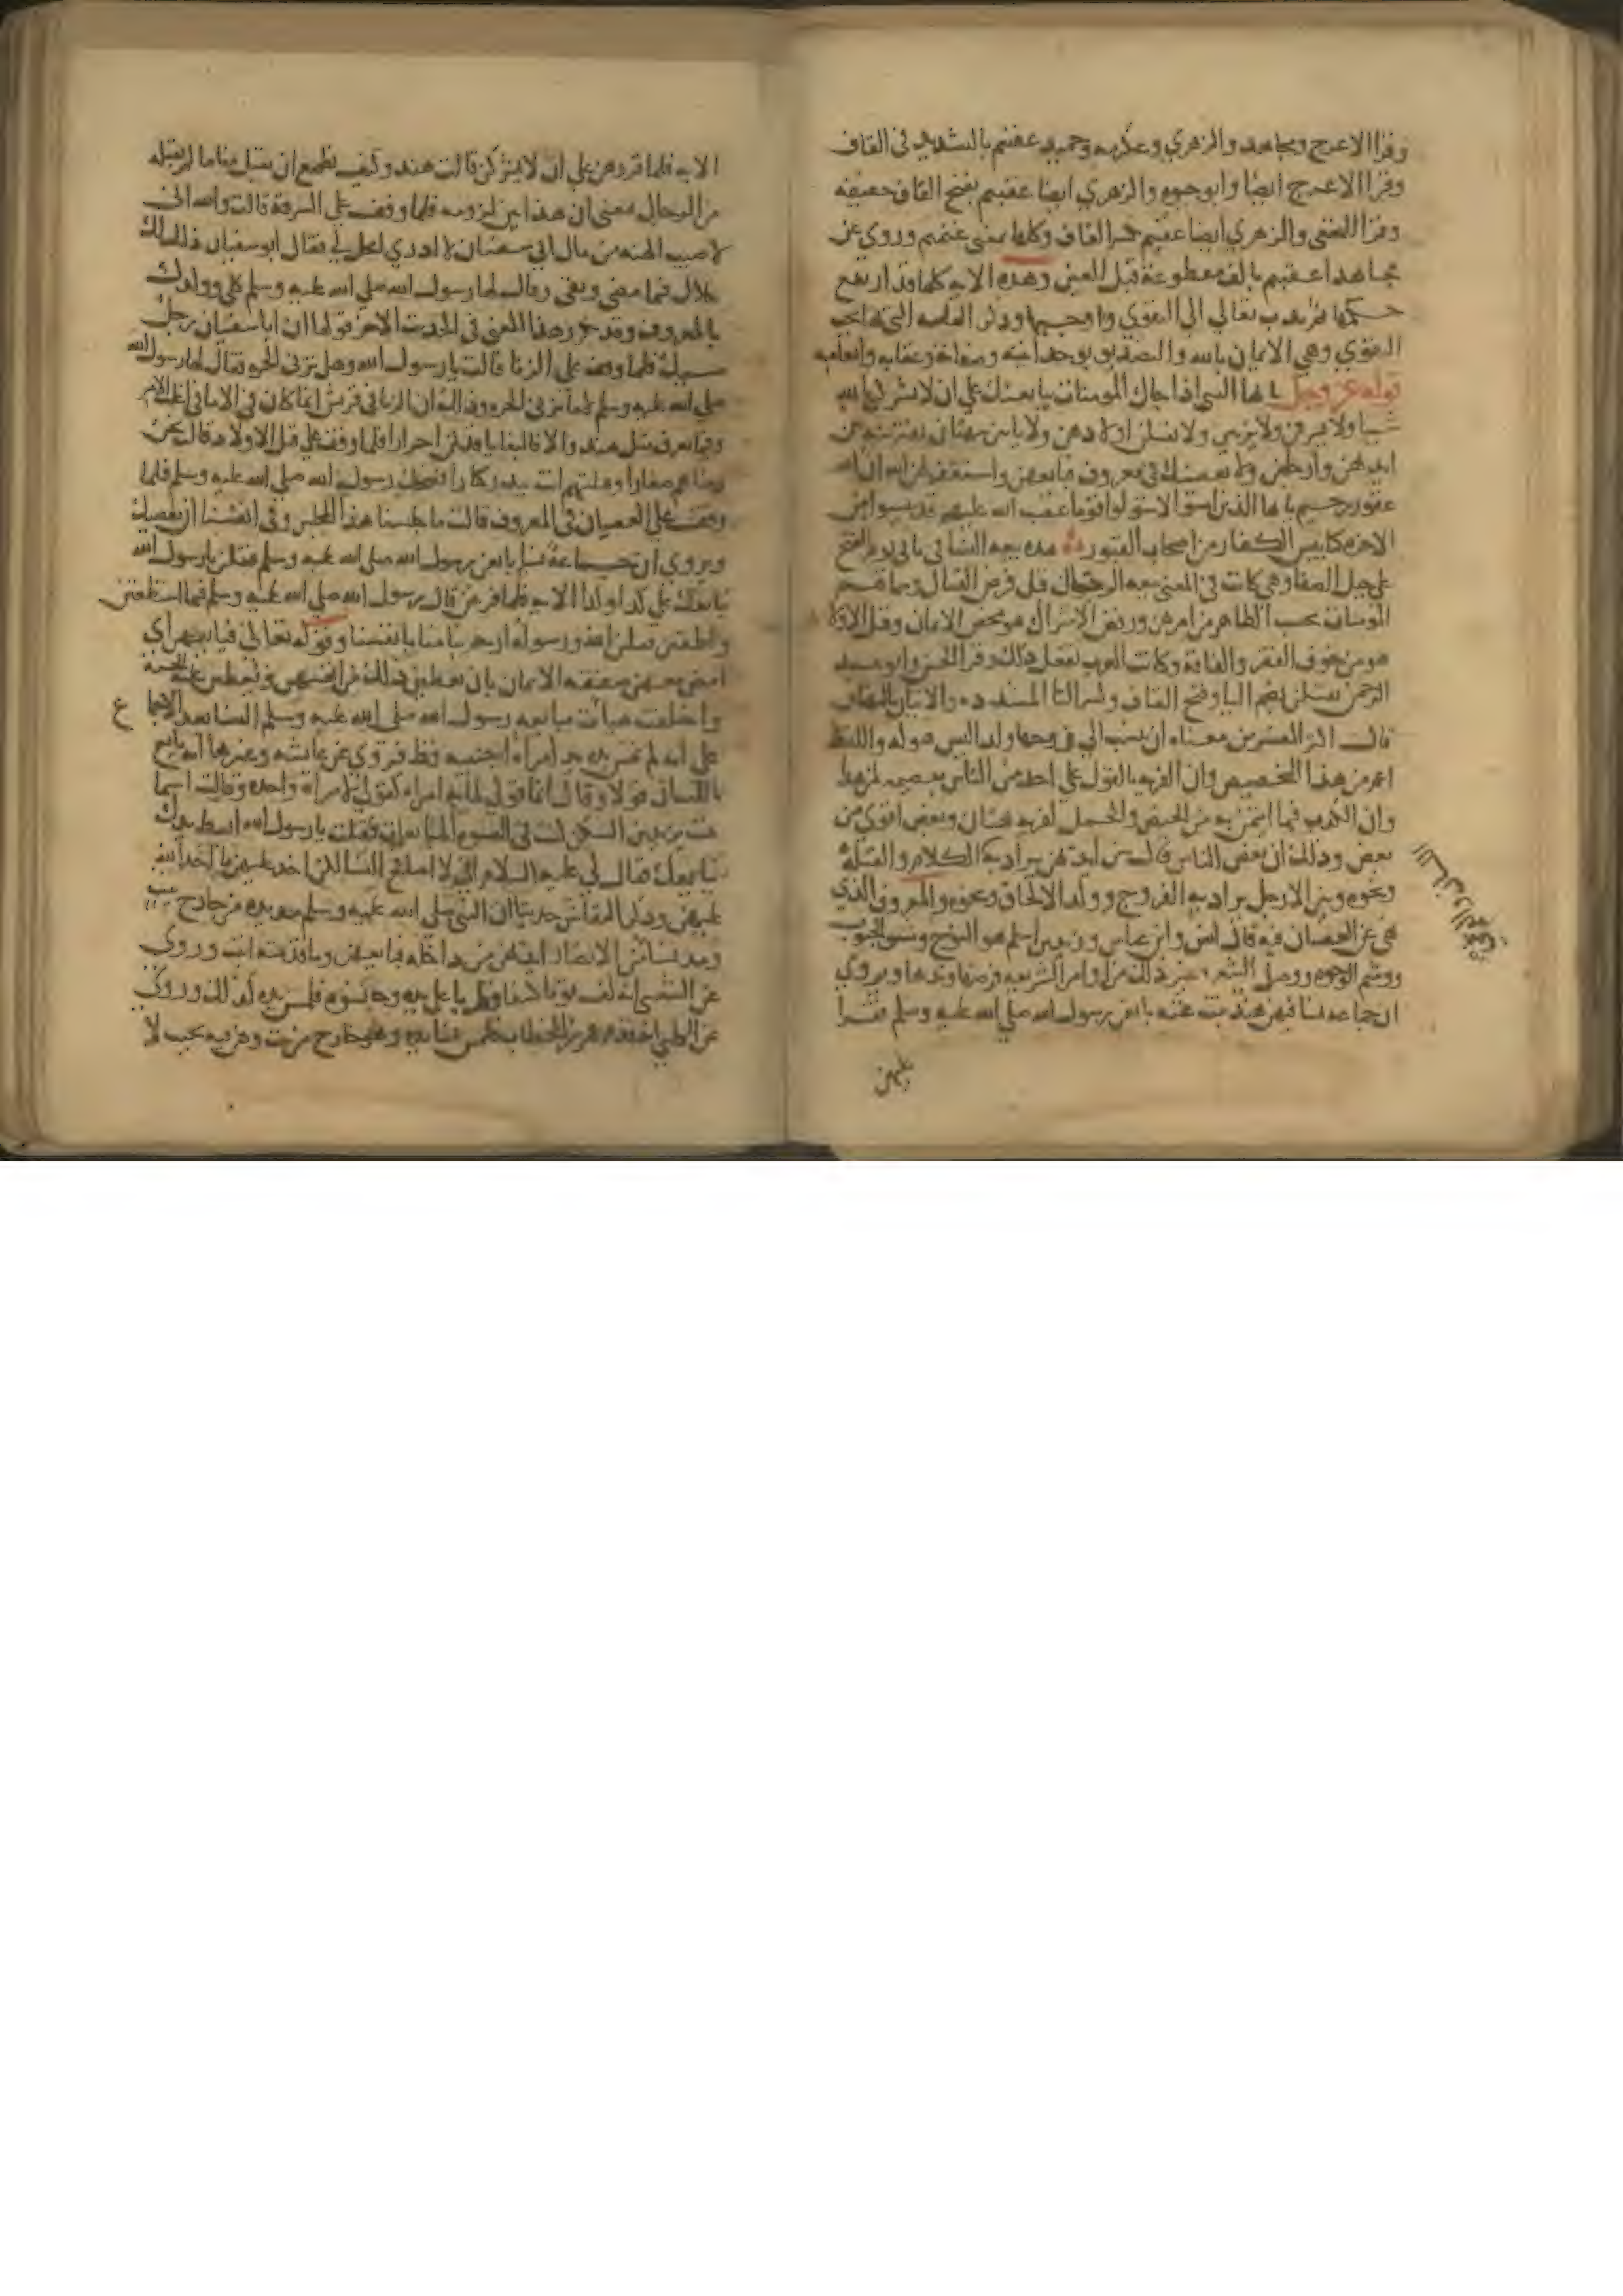 وقرا الاعرج ومجاهد والزهري وعكرمه وحميد عقبتم بالتشديد في القاف
وقرا الاعرج ايضا وابو حيوه والزهري ايضا عقبتم بفتح القاف خفيفه
وقرا النخعي والزهري ايضا عقبتم بكسر القاف وكلها بمعنى غنمتم وروي عن
مجاهد اعقبتم بالف مقطوعة قبل العين وهذه الايه كلها قد ارتفع
حكمها ثم ندب تعالى الى التقوي واوجبها وذكر العله التي بها يجب
التقوي وهي الايمان بالله والتصديق بوحدانيته وصفاته وعقابه وانعامه
قوله عز وجل يا ايها النبي اذا جاك المومنات يبايعنك على ان لا يشركن بالله
شيا ولا يسرقن ولا يزنين ولا يقتلن اولادهن ولا ياتين ببهتان يفترينه بين
ايديهن وارجلهن ولا يعصينك في معروف فبايعهن واستغفر لهن الله ان الله
غفور رحيم يا ايها الذين امنوا لا تتولوا قوما غضب الله عليهم قد يئسوا من
الاخره كما يئس الكفار من اصحاب القبور هذه بيعه النسا في ثاني يوم الفتح
على جبل الصفا وهي كانت في المعنى بيعه الرجال قبل فرض القتال وسماهم
المومنات بحسب الظاهر من امرهن ورفض الاشراك هو محض الايمان وقتل الاولاد
هو من خوف الفقر والفاقة وكانت العرب تفعل ذلك وقرا الحسن وابو عبد
الرحمن يقتلن بضم اليا وفتح القاف وكسر التا المشدده والاتيان بالبهتان
قال اكثر المفسرين معناه ان تنسب الى زوجها ولدا ليس هو له واللفظ
اعم من هذا التخصيص وان الفريه بالقول على احد من الناس بعضيهه لمن هذا
وان الكذب فيما ايتمن به من الحيض والحمل لفريه بهتان وبعض اقوي من
بعض وذلك ان بعض الناس قال بين ايديهن يراد به الكلام والقبلة
ونحوه وبين الارجل يراد به الفروج وولد الالحاق ونحوه والمعروف الذي
نهى عن العصيان فيه قال انس وابن عباس وزيد بن اسلم هو النوح وشق الجيوب
ووشم الوجوه ووصل الشعر وغير ذلك من اوامر الشريعه فرضها وندبها ويروى
ان جماعه نسا فيهن هند بنت عتبه بايعن رسول الله صلى الله عليه وسلم فقرا
عليهن
الايه فلما قررهن على ان لا يشركن قالت هند وكيف نطمع ان يقبل منا ما لم يقبله
من الرجال بمعنى ان هذا بين لزومه فلما وقف على السرقة قالت والله اني
لاصيب الهنه من مال ابي سفيان لا ادري ايحل لي فقال ابو سفيان ذلك لك
حلال فيما مضى وبقى وقال لها رسول الله صلى الله عليه وسلم كلي وولدك
بالمعروف وقد تكرر هذا المعنى في الحديث الاخر قولها ان ابا سفيان رجل
مسيك فلما وقف على الزنا قالت يا رسول الله وهل تزني الحره فقال لها رسول الله
صلى الله عليه وسلم لا ما تزني الحره وذلك ان الزنا في قريش انما كان في الاما في اغلب الامر
وفيما يعرف مثل هند والا فالبغايا قد كن احرارا فلما وقف على قتل الاولاد قالت نحن
ربيناهم صغارا وقتلتهم انت ببدر كبارا فضحك رسول الله صلى الله عليه وسلم فلما
وقفت على العصيان في المعروف قالت ما جلسنا هذا المجلس وفي انفسنا ان نعصيك
ويروى ان جماعة نسا بايعن رسول الله صلى الله عليه وسلم فقلن يا رسول الله
نبايعك على كذا وكذا الايه فلما فرغن قال رسول الله صلى الله عليه وسلم فيما استطعتن
واطقتن فقلن الله ورسوله ارحم بنا منا بانفسنا وقوله تعالى فبايعهن اي
امض معهن صفقه الايمان بان يعطين ذلك من انفسهن ويعطين عليه الجنة
واختلفت هيات مبايعه رسول الله صلى الله عليه وسلم النسا بعد الاجماع
على انه لم تمس يده يد امراة اجنبيه قط فروي عن عايشه وغيرها انه بايع
باللسان قولا وقال انما قولي لمايه امراه كقولي لامراة واحده وقالت اسما
بنت يزيد بن السكن كنت في النسوه المبايعات فقلت يا رسول الله ابسط يدك
نبايعك فقال لي عليه السلام اني لا اصافح النسا لكن اخذ عليهن ما اخذ الله
عليهن وذكر النقاش حديثا ان النبي صلى الله عليه وسلم مد يده من خارج بيت
ومد نسا من الانصار ايديهن من داخله فبايعهن وما قدمته اثبت وروي
عن الشعبي انه لف ثوبا كثيفا على يده وجا نسوه فلمسن يده كذلك وروي